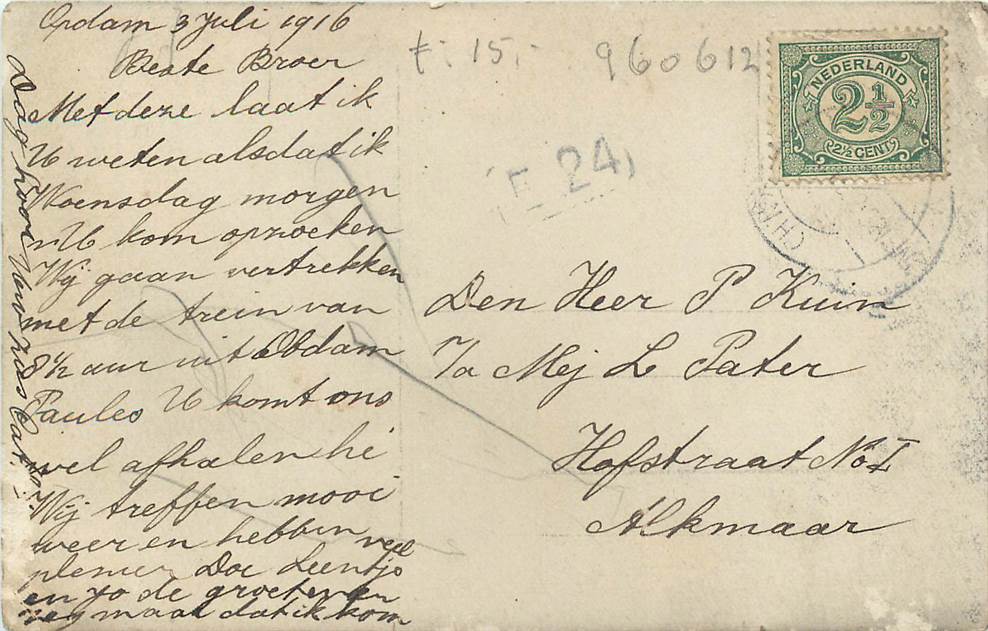 Opdam 3 Juli 1916
Beste Broer
Met deze laat ik
U weten alsdat ik
Woensdag morgen
U kom opzoeken
Wij gaan vertrekken
met de trein van
8½ uur uit Obdam
Paules U komt ons
wel afhalen hé
Wij treffen mooi
weer en hebben veel
plezier Doe Leentjo
en Jo de groeten en
zeg maar dat ik kom
Dag hoor van zus
f: 15,-
960612
(E 24)
NEDERLAND
2½
2½ CENT
Den Heer P Kuin
Mej L Pater
Hofstraat No I
Alkmaar